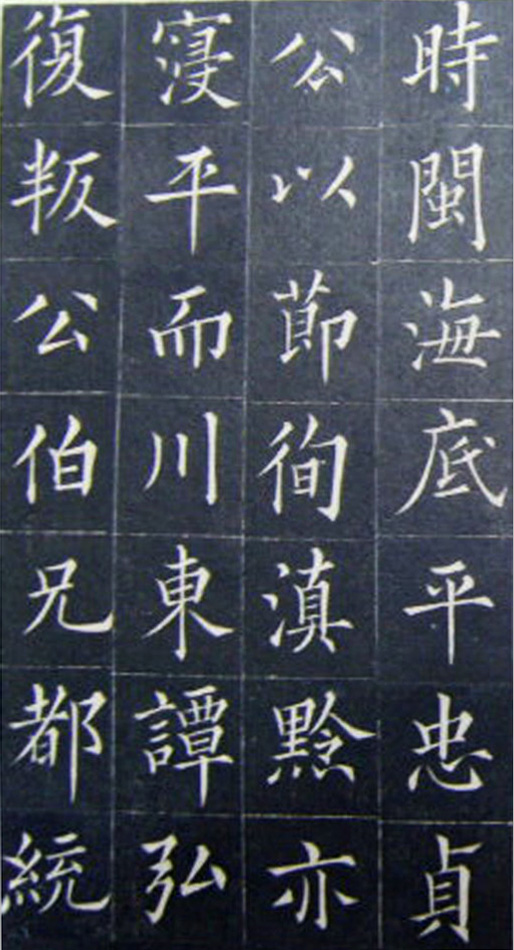 時閩海底平忠貞
公以節徇滇黔亦
寖平而川東譚弘
復叛公伯兄都統